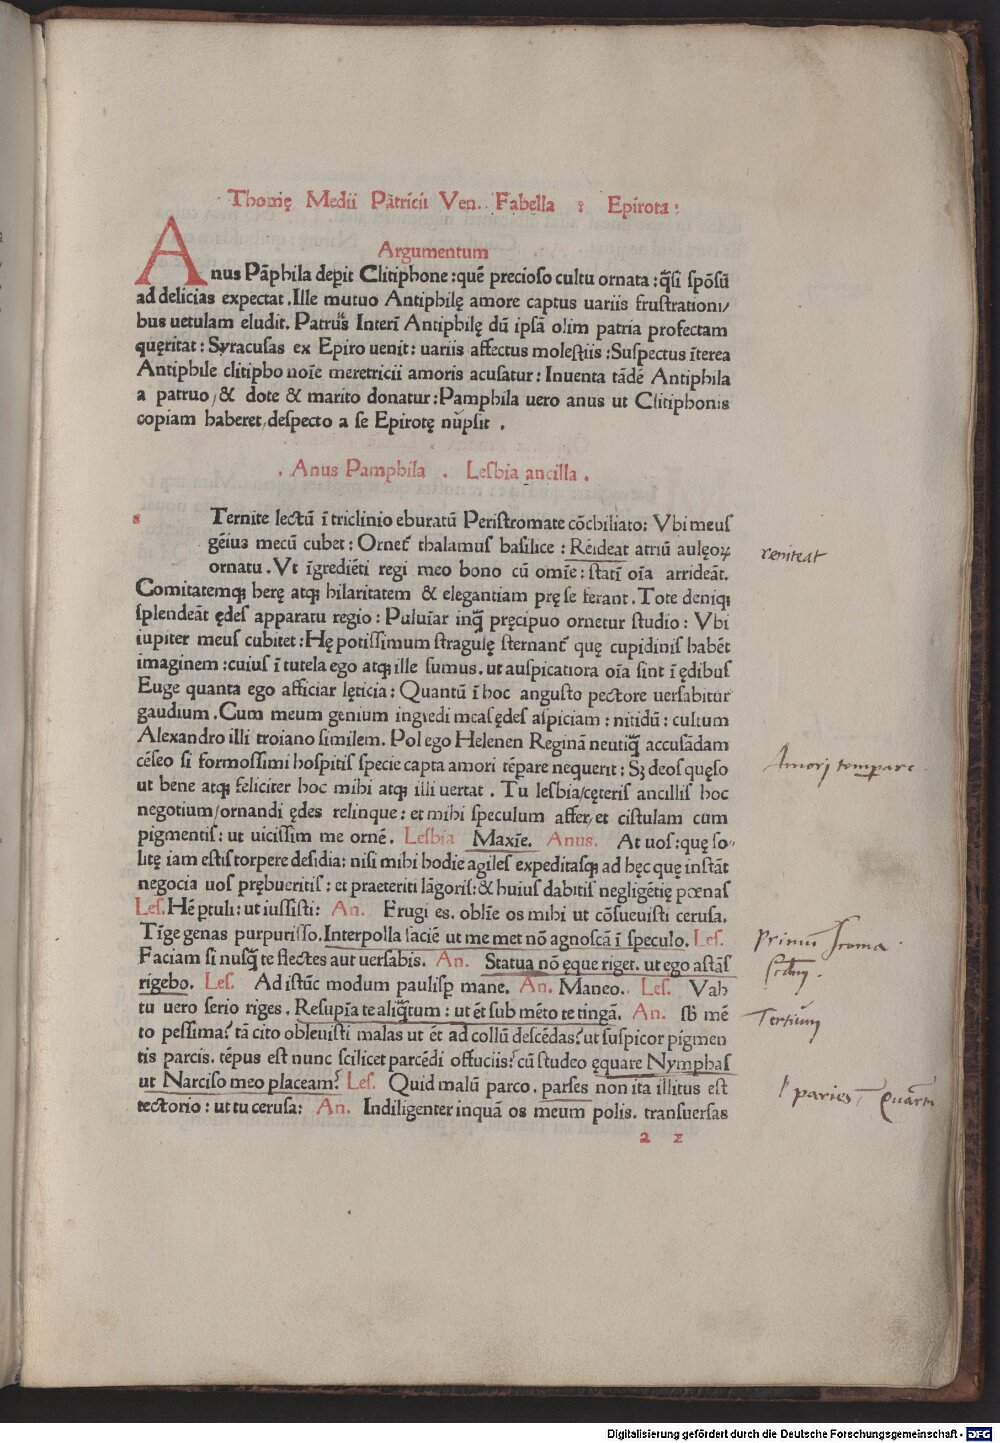 Thomę Medii Patricii Ven. Fabella : Epirota :
Argumentum
Anus Pāphila deperit Clitiphonē : quē precioso cultu ornata : q̄si spōsū
ad delicias expectat . Ille mutuo Antiphilę amore captus uariis frustrationi/
bus uetulam eludit . Patruus Interī Antiphilę dū ipsā olim patria profectam
quęritat : Syracusas ex Epiro uenit : uariis affectus molestiis : Suspectus īterea
Antiphile clitipho noīe meretricii amoris acusatur : Inuenta tādē Antiphila
a patruo / & dote & marito donatur : Pamphila uero anus ut Clitiphonis
copiam haberet / despecto a se Epirotę nūpsit .
. Anus Pamphila . Lesbia ancilla .
s Ternite lectū ī triclinio eburatū Peristromate cōchiliato : Vbi meus
gēius mecū cubet : Ornet᷑ thalamus basilice : Rēideat atriū aulęoꝝ
ornatu . Vt īgrediēti regi meo bono cū omīe : statī oīa arrideāt .
Comitatemqꝫ herę atqꝫ hilaritatem & elegantiam prę se ferant . Tote deniqꝫ
splendeāt ędes apparatu regio : Puluīar inq̄ pręcipuo ornetur studio : Vbi
iupiter meus cubitet : Hę potissimum stragulę sternant᷑ quę cupidinis habēt
imaginem : cuius ī tutela ego atqꝫ ille sumus . ut auspicatiora oīa sint ī ędibus
Euge quanta ego afficiar lęticia : Quantū ī hoc angusto pectore uersabitur
gaudium . Cum meum genium ingredi meas ędes aspiciam : nitidū : cultum
Alexandro illi troiano similem . Pol ego Helenen Reginā neutiq̄ accusādam
cēseo si formossimi hospitis specie capta amori tēpare nequerit : Sꝫ deos quęso
ut bene atqꝫ feliciter hoc mihi atqꝫ illi uertat . Tu lesbia / cęteris ancillis hoc
negotium / ornandi ędes relinque : et mihi speculum affer / et cistulam cum
pigmentis : ut uicissim me ornē . Lesbia Maxīe . Anus . At uos : quę so-
litę iam estis torpere desidia : nisi mihi hodie agiles expeditasqꝫ ad hęc quę instāt
negocia uos prębueritis : et praeteriti lāgoris : & huius dabitis negligētię pœnas
Les . Hē ptuli : ut iussisti : An . Frugi es . oblīe os mihi ut cōsueuisti cerusa .
Tīge genas purpurisso . Interpolla faciē ut me met nō agnoscā ī speculo . Les .
Faciam si nusq̄ te flectes aut uersabis . An . Statua nō ęque riget . ut ego astās
rigebo . Les . Ad istūc modum paulisꝑ mane . An . Maneo . Les . Vah
tu uero serio riges . Resupīa te aliq̄tum : ut ēt sub mēto te tingā . An . sb̄ mē
to pessima? tā cito obleuisti malas ut ēt ad collū descēdas? ut suspicor pigmen
tis parcis . tēpus est nunc scilicet parcēdi offuciis? cū studeo ęquare Nymphas
ut Narciso meo placeam? Les . Quid malū parco . parses non ita illitus est
tectorio : ut tu cerusa : An . Indiligenter inquā os meum polis . transuersas
a 1
reniteat
Amorj temperare
primū scoma .
Tertium
paries
Quartum
Digitalisierung gefördert durch die Deutsche Forschungsgemeinschaft - DFG